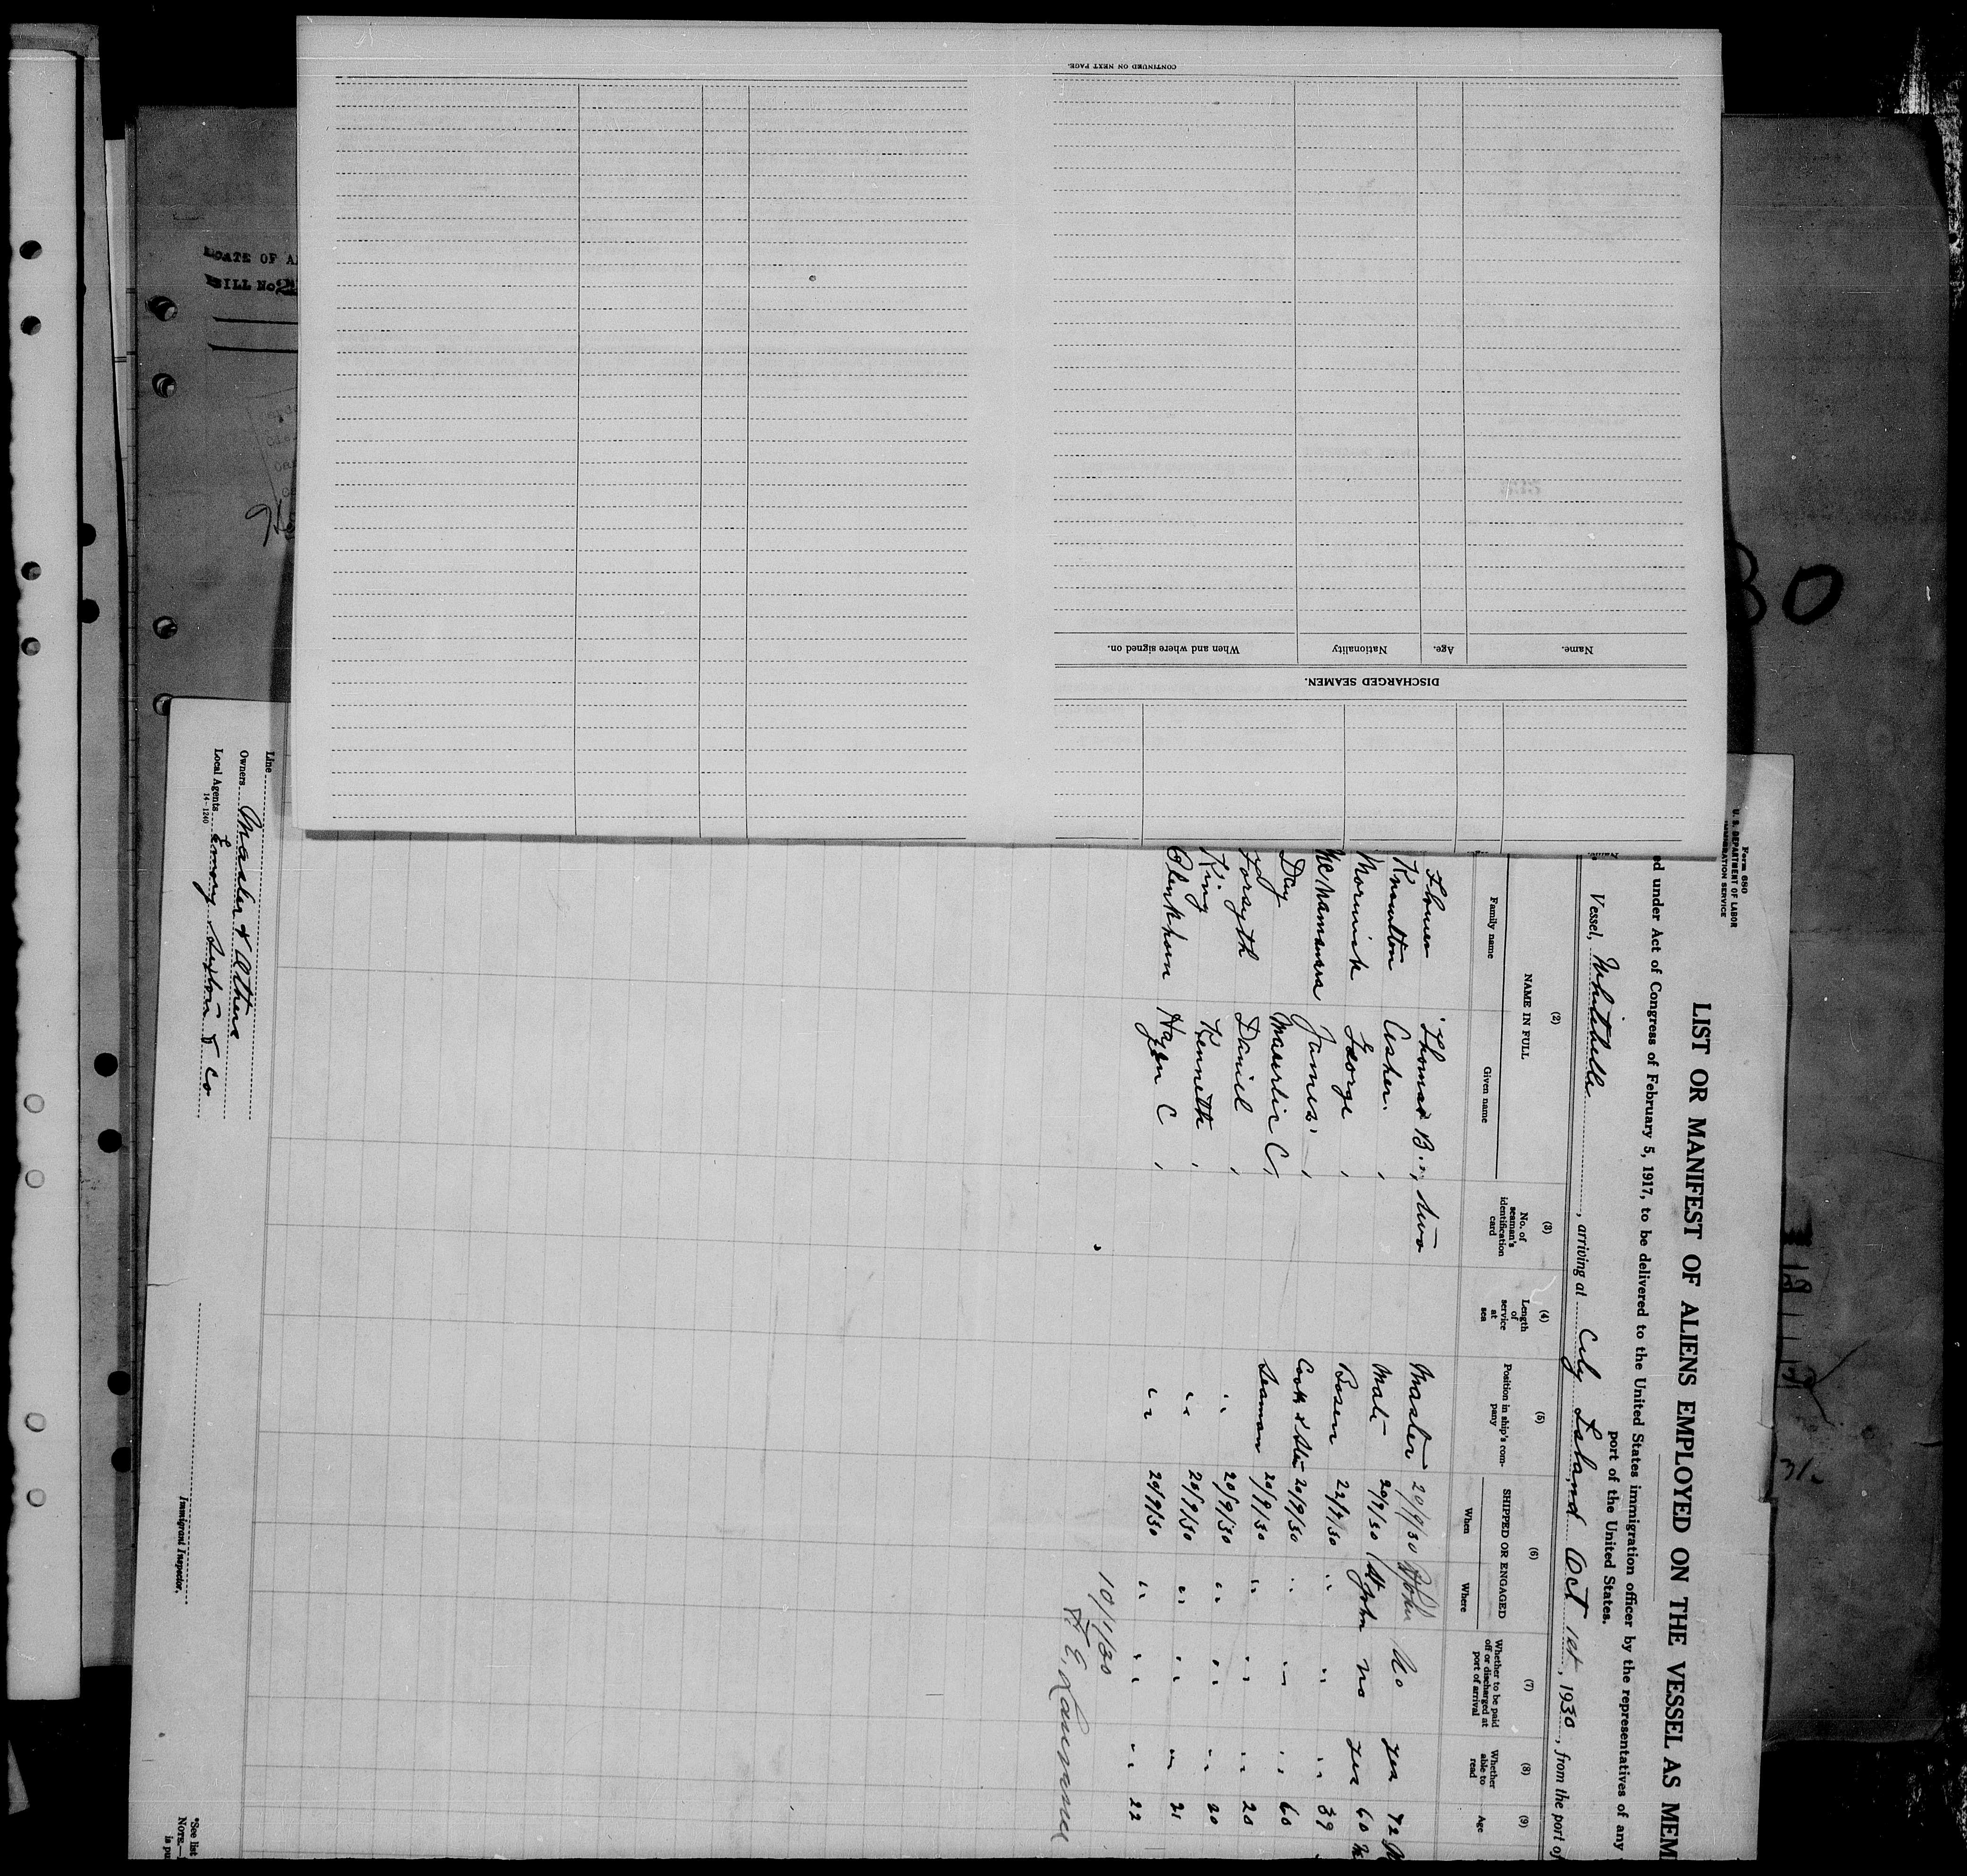 CONTINUED ON NEXT PAGE.
When and where signed on.
Nationality
Age.
Name.
DISCHARGED SEAMEN.
DATE OF A
BILL No.
30
Form 680
U. S. DEPARTMENT OF LABOR
IMMIGRATION SERVICE
LIST OR MANIFEST OF ALIENS EMPLOYED ON THE VESSEL AS MEM
ed under Act of Congress of February 5, 1917, to be delivered to the United States immigration officer by the representatives of any
port of the United States.
Vessel, Whitebelle, arriving at City Island Oct 1st, 1930, from the port of
(2) (3) (4) (5) (6) (7) (8) (9)
NAME IN FULL
Family name Given name
No. of seaman's identification card
Length of service at sea
Position in ship's company
SHIPPED OR ENGAGED
When Where
Whether to be paid off or discharged at port of arrival
Whether able to read
Age
Thomas B. Master 20/9/30 St John No yes 42
Knowlton Asher Mate 20/9/30 St John no yes 60
George Bosen 22/9/30 " " " 39
McNamara James Cook & 20/9/30 " " " 60
Day C Seaman 20/9/30 " " " 20
Forsyth Daniel " 20/9/30 " " " 20
King Kenneth " 20/9/30 " " " 21
Hayen C " 20/9/30 " " " 22
10/1/30
Line
Owners Master & Others
Local Agents Emory Sexton & Co
14-1240
Immigrant Inspector.
*See list
NOTE.—
is pu